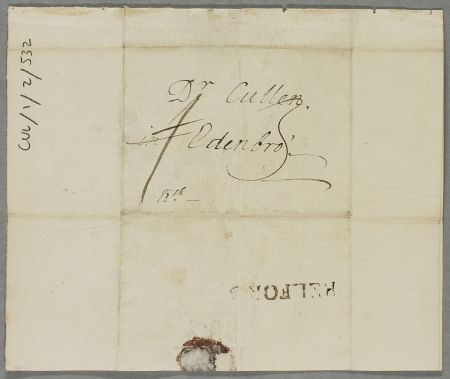 CUL/1/2/532
Dr Cullen.
in Edenbro'.
13th
BELFORD